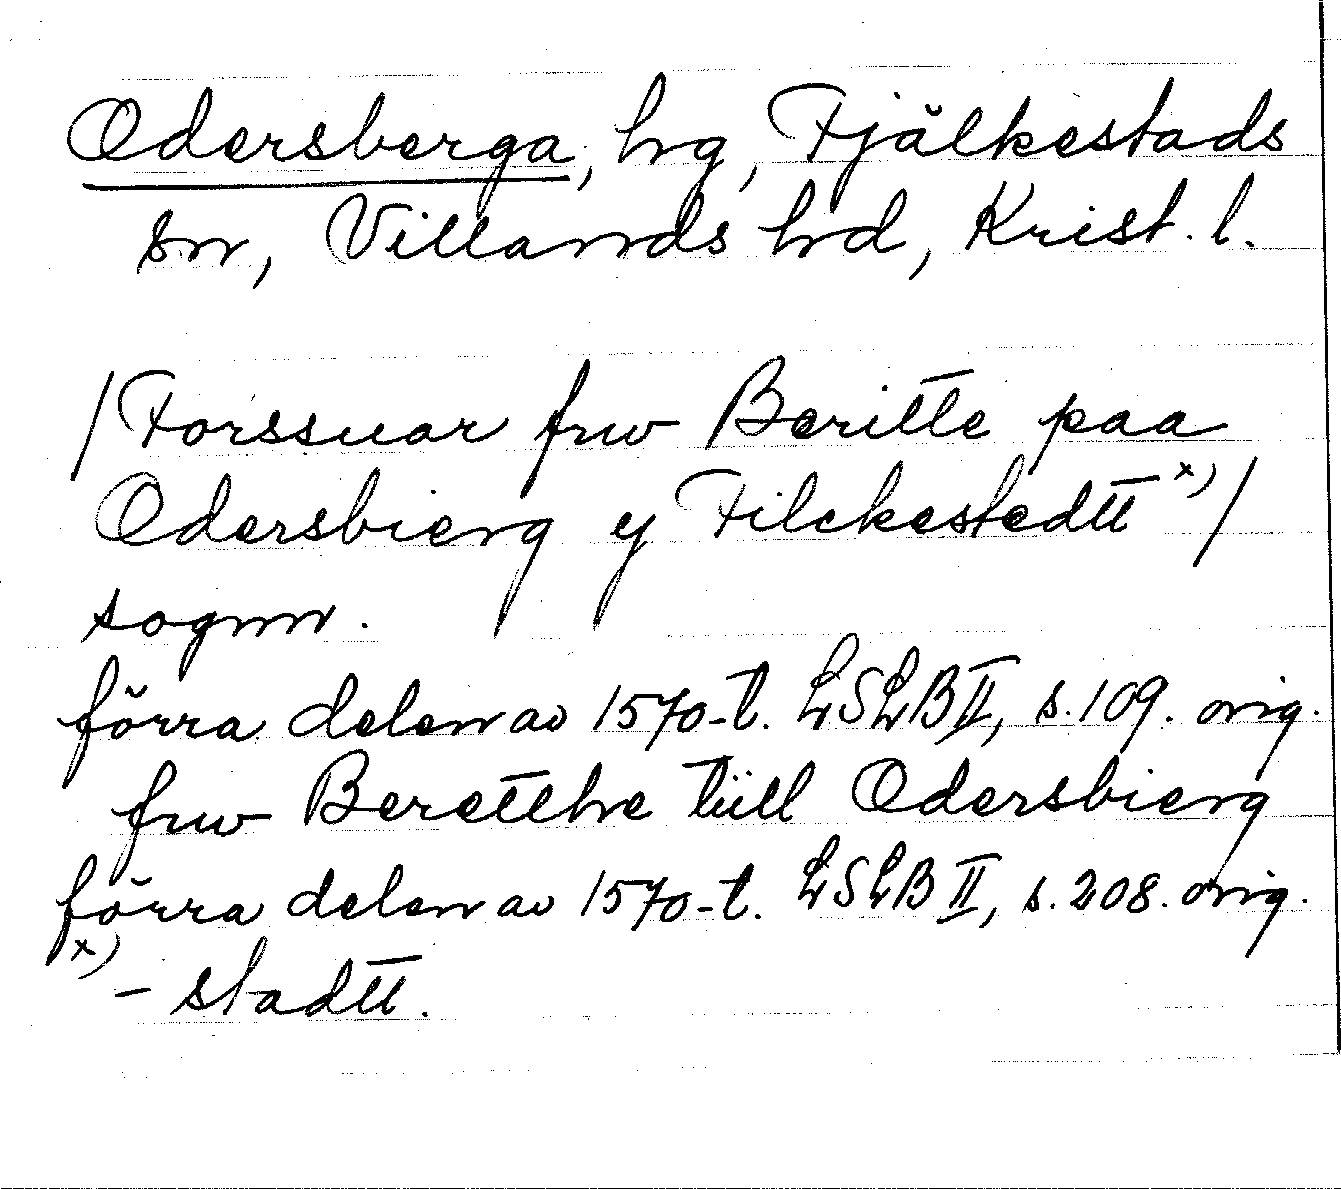 Odersberga, hrg, Fjälkestads
sn, Villands hrd, Krist. l.
/Forssuar frw Beritte paa
Odersbierg y Filckestedtt x)/
sognn.
förra delen av 1570-t. LSLB II, s. 109. orig.
frw Beretthe tiill Odersbierg
förra delen av 1570-t. LSLB II, s. 208. orig.
x)
- stadtt.